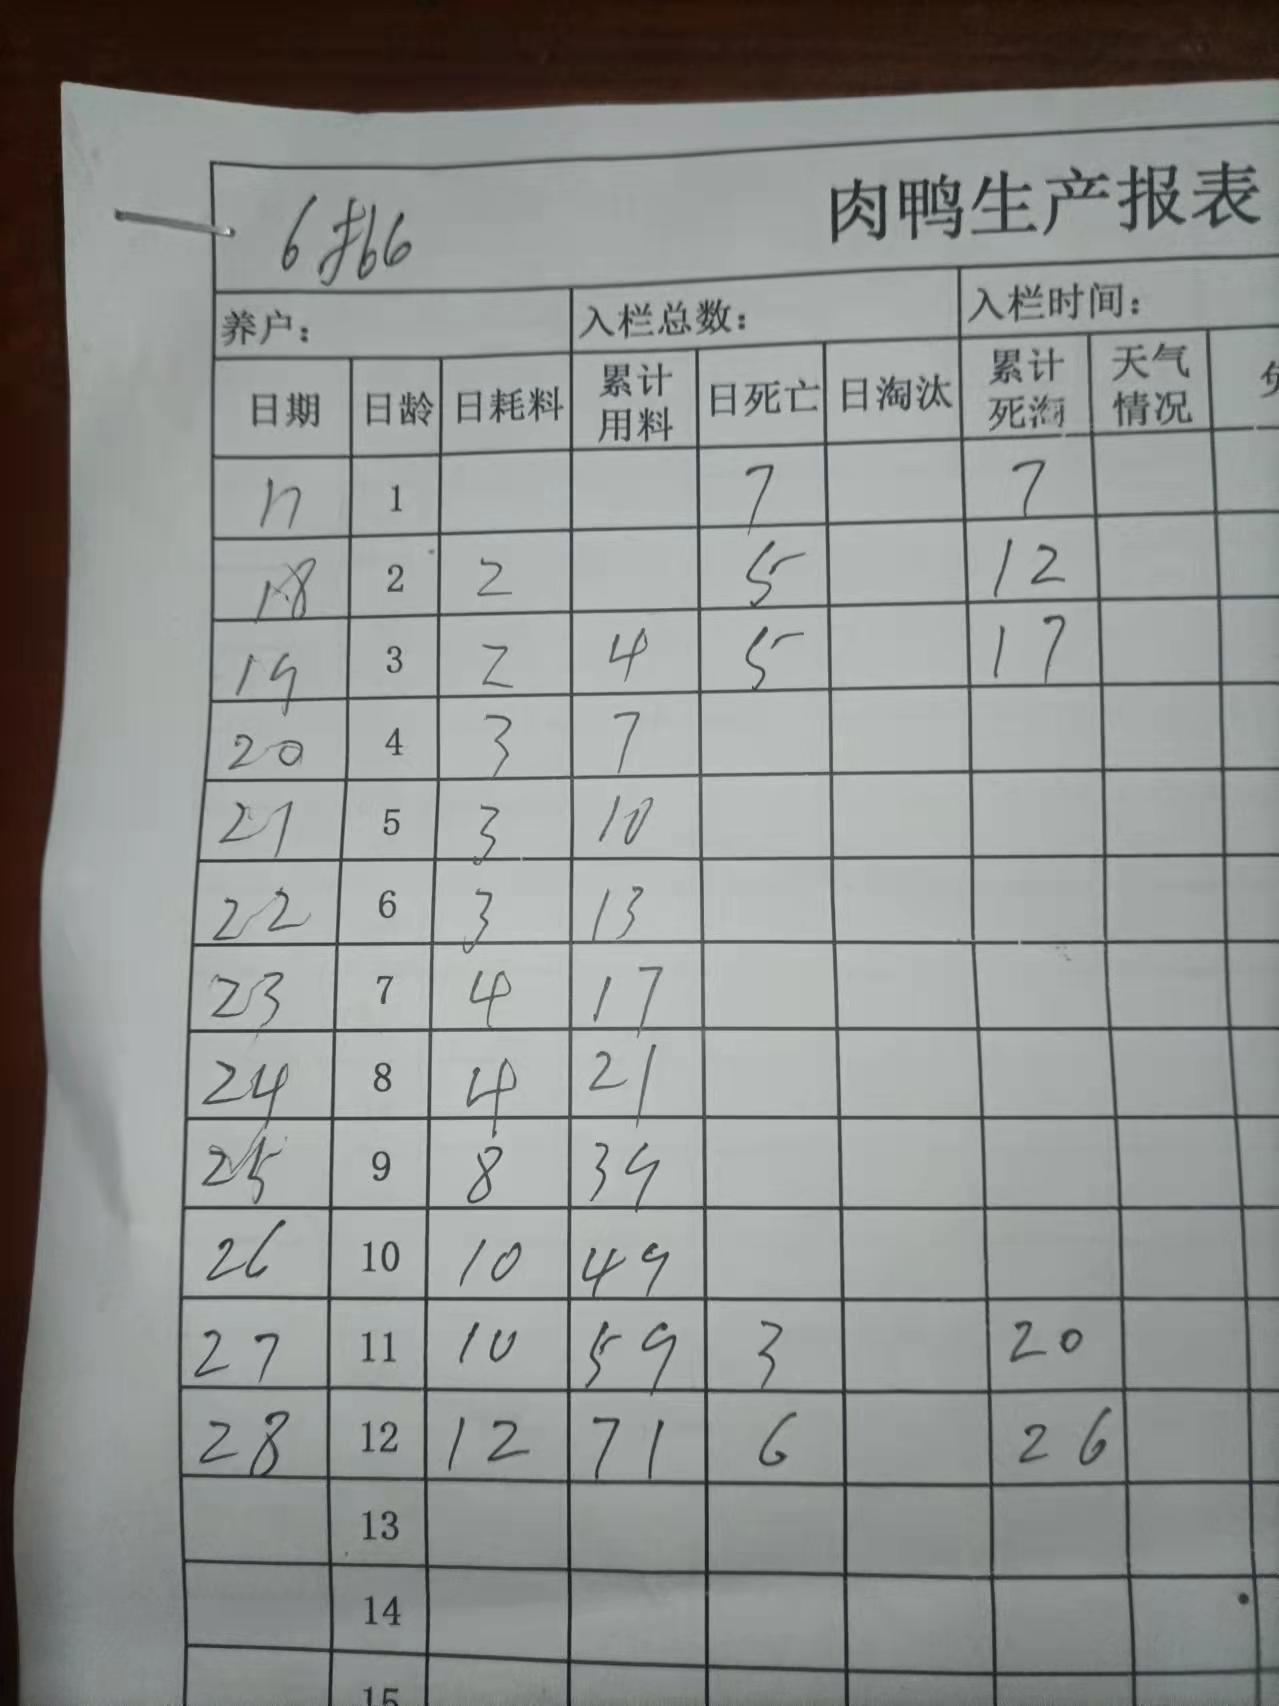 肉鸭生产报表
养户： 入栏总数： 入栏时间：
日期 日龄 日耗料 累计用料 日死亡 日淘汰 累计死淘 天气情况
17 1 7 7
18 2 2 5 12
19 3 2 4 5 17
20 4 3 7
21 5 3 10
22 6 3 13
23 7 4 17
24 8 4 21
25 9 8 39
26 10 10 49
27 11 10 59 3 20
28 12 12 71 6 26
13
14
15